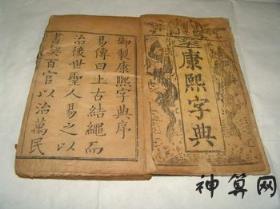 康熙字典
御製康熙字典序
易傳曰上古結繩而
治後世聖人易之以
書契百官以治萬民
神算网